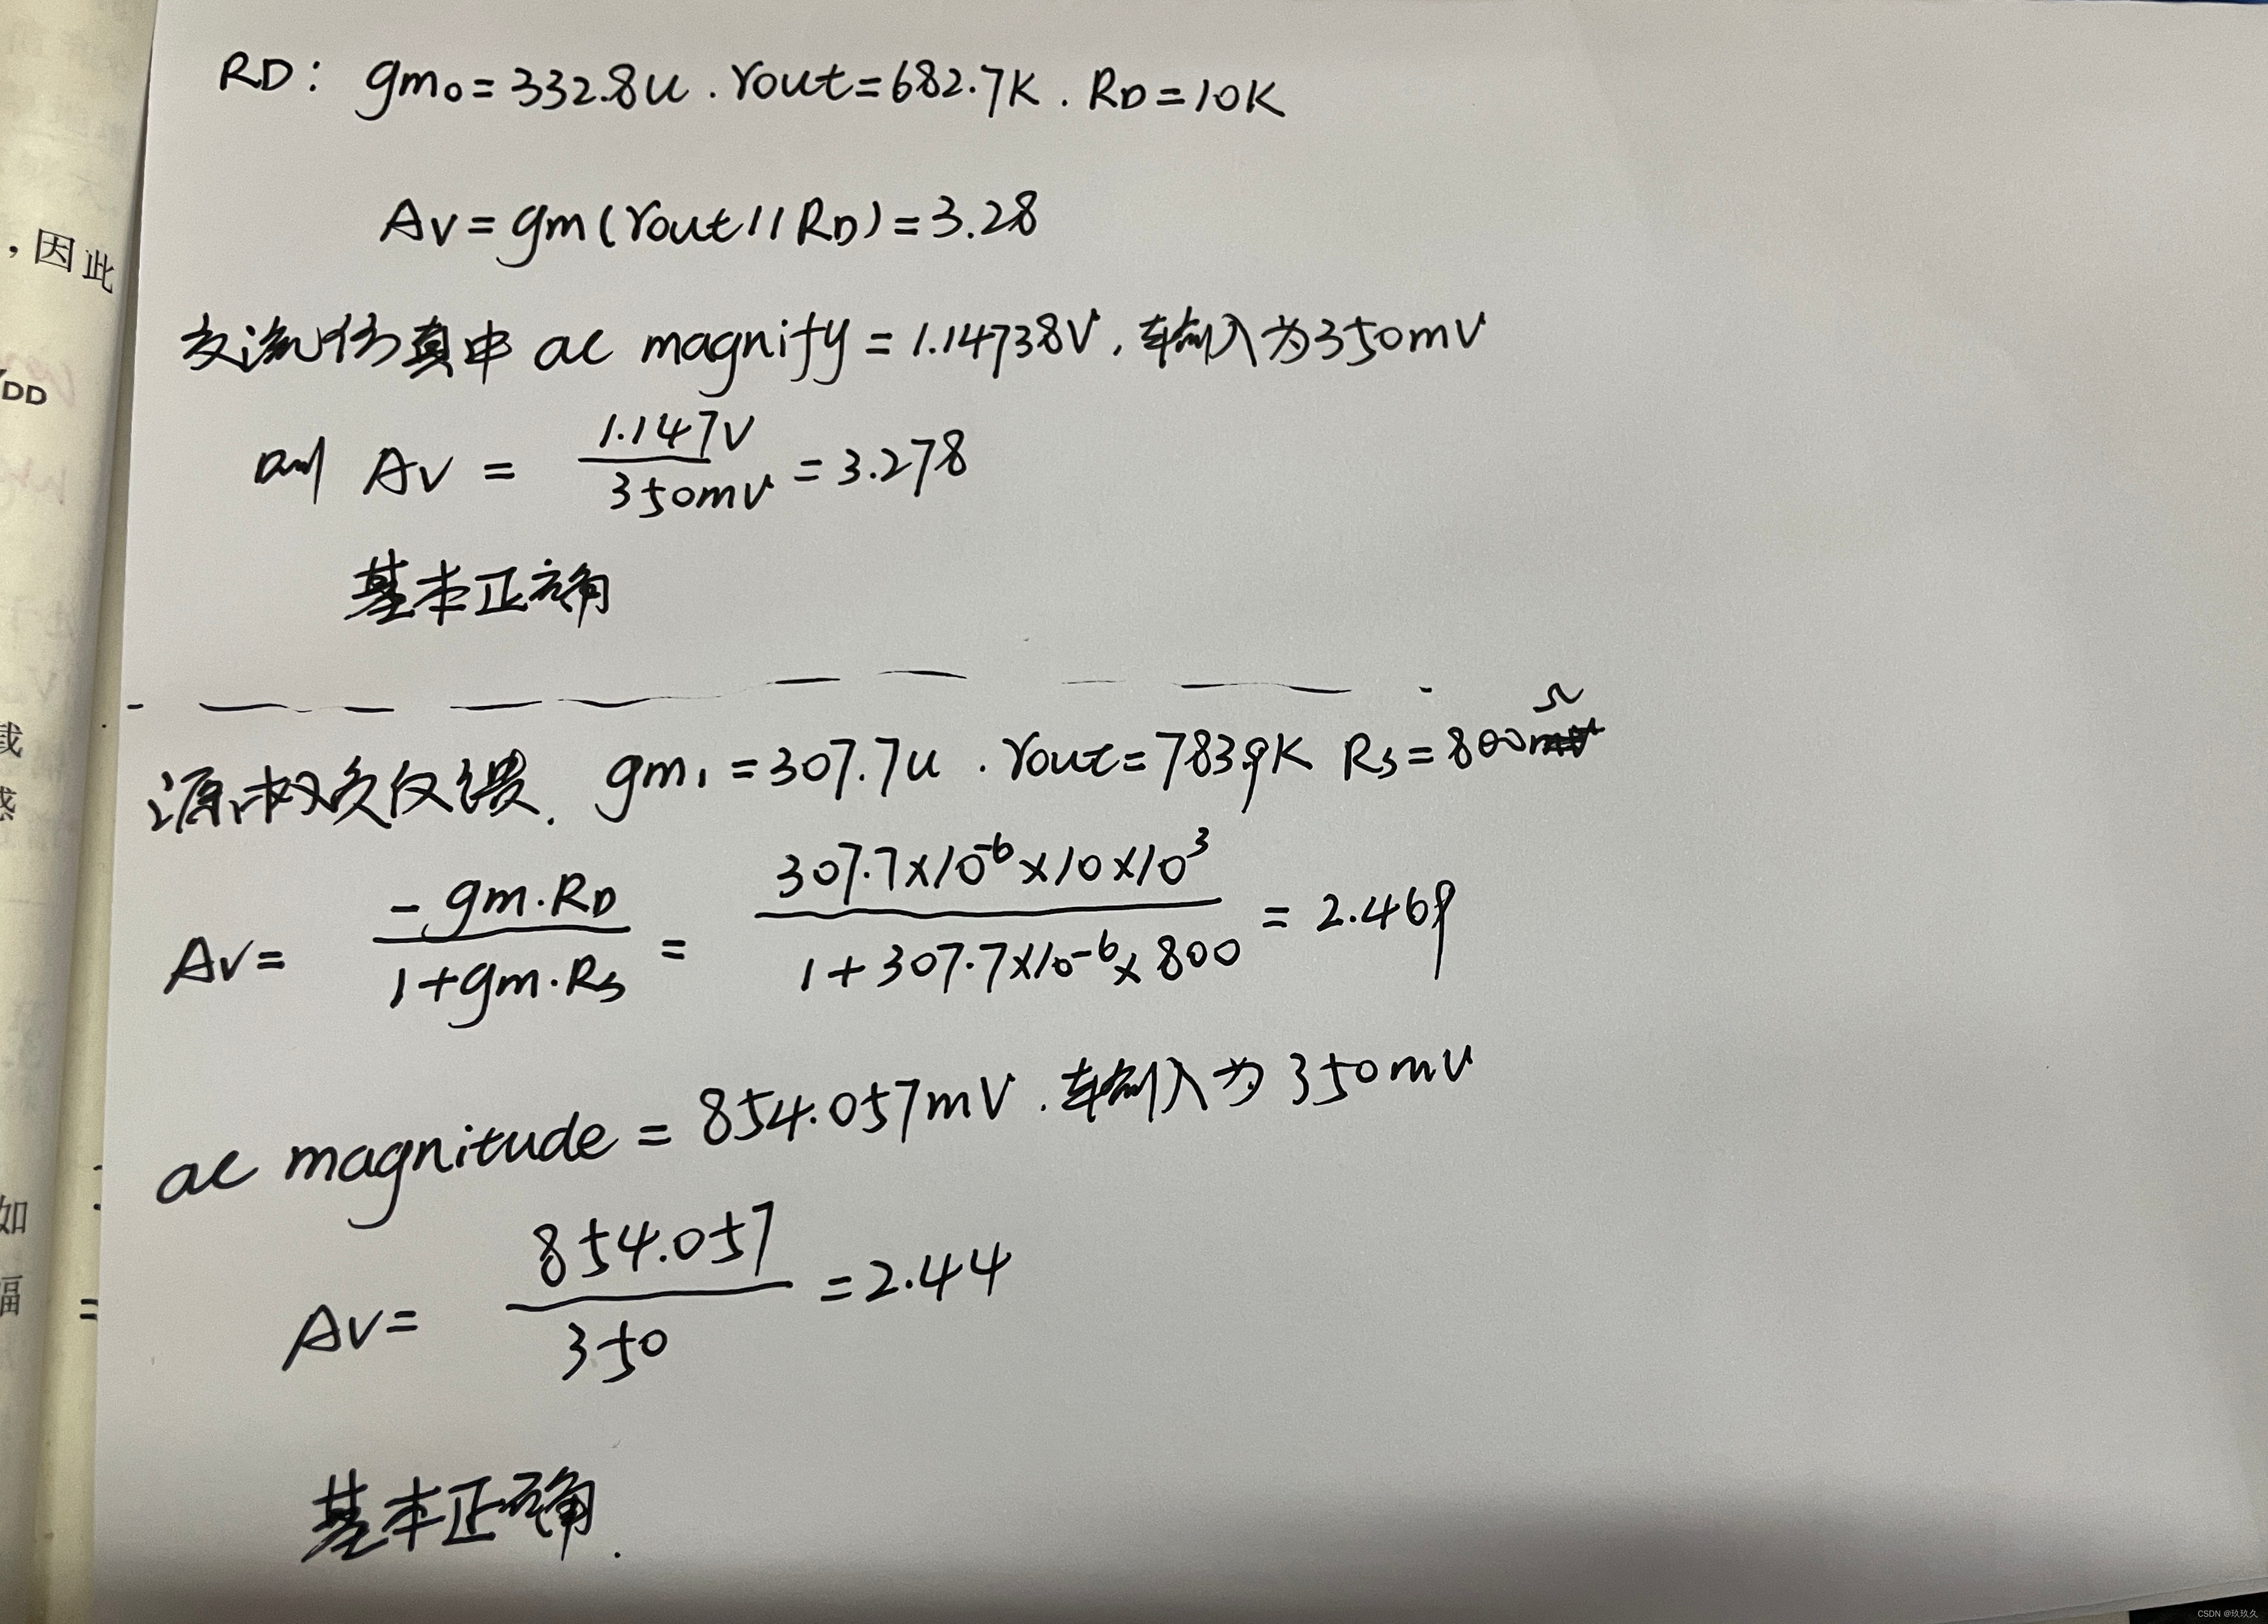 RD: gm₀=332.8u . rout=682.7K . RD=10K
，因此
Av=gm(rout//RD)=3.28
交流仿真中 ac magnify=1.14738V，输入为350mV
DD
则 Av = 1.147V / 350mV = 3.278
基本正确
载
源极负反馈. gm₁=307.7u . rout=783.9K Rs=800Ω
感
Av= -gm·RD / 1+gm·Rs = 307.7×10⁻⁶×10×10³ / 1+307.7×10⁻⁶×800 = 2.469
ac magnitude = 854.057mV . 输入为350mV
如
Av= 854.057 / 350 =2.44
福
=
基本正确.
CSDN @玖玖久